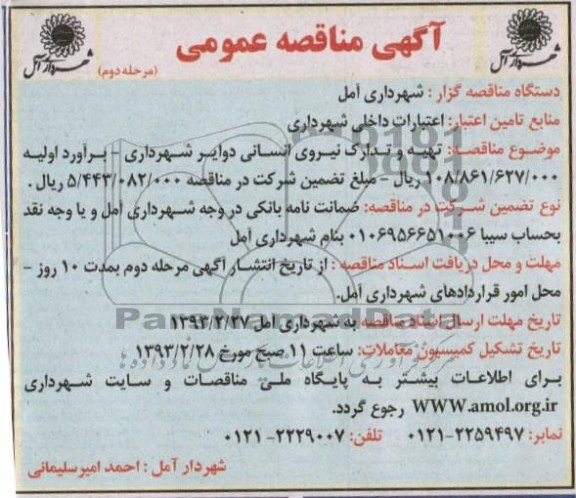 آگهی مناقصه عمومی
(مرحله دوم)
شهرداری آمل
شهرداری آمل
دستگاه مناقصه گزار : شهرداری آمل
منابع تامین اعتبار: اعتبارات داخلی شهرداری
موضوع مناقصه: تهیه و تدارک نیروی انسانی دوایر شهرداری - برآورد اولیه
۱۰۸/۸۶۱/۶۲۷/۰۰۰ ریال - مبلغ تضمین شرکت در مناقصه ۵/۴۴۳/۰۸۲/۰۰۰ ریال .
نوع تضمین شرکت در مناقصه: ضمانت نامه بانکی در وجه شهرداری آمل و یا وجه نقد
بحساب سیبا ۰۱۰۶۹۵۶۶۵۱۰۰۶ بنام شهرداری آمل
مهلت و محل دریافت اسناد مناقصه : از تاریخ انتشار آگهی مرحله دوم بمدت ۱۰ روز -
محل امور قراردادهای شهرداری آمل.
تاریخ مهلت ارسال اسناد مناقصه به شهرداری آمل ۱۳۹۳/۲/۲۷
تاریخ تشکیل کمیسیون معاملات: ساعت ۱۱ صبح مورخ ۱۳۹۳/۲/۲۸
برای اطلاعات بیشتر به پایگاه ملی مناقصات و سایت شهرداری
WWW.amol.org.ir رجوع گردد.
نمابر: ۲۲۵۹۴۹۷-۰۱۲۱ تلفن: ۲۲۲۹۰۰۷-۰۱۲۱
شهردار آمل : احمد امیرسلیمانی
ParsNamadData